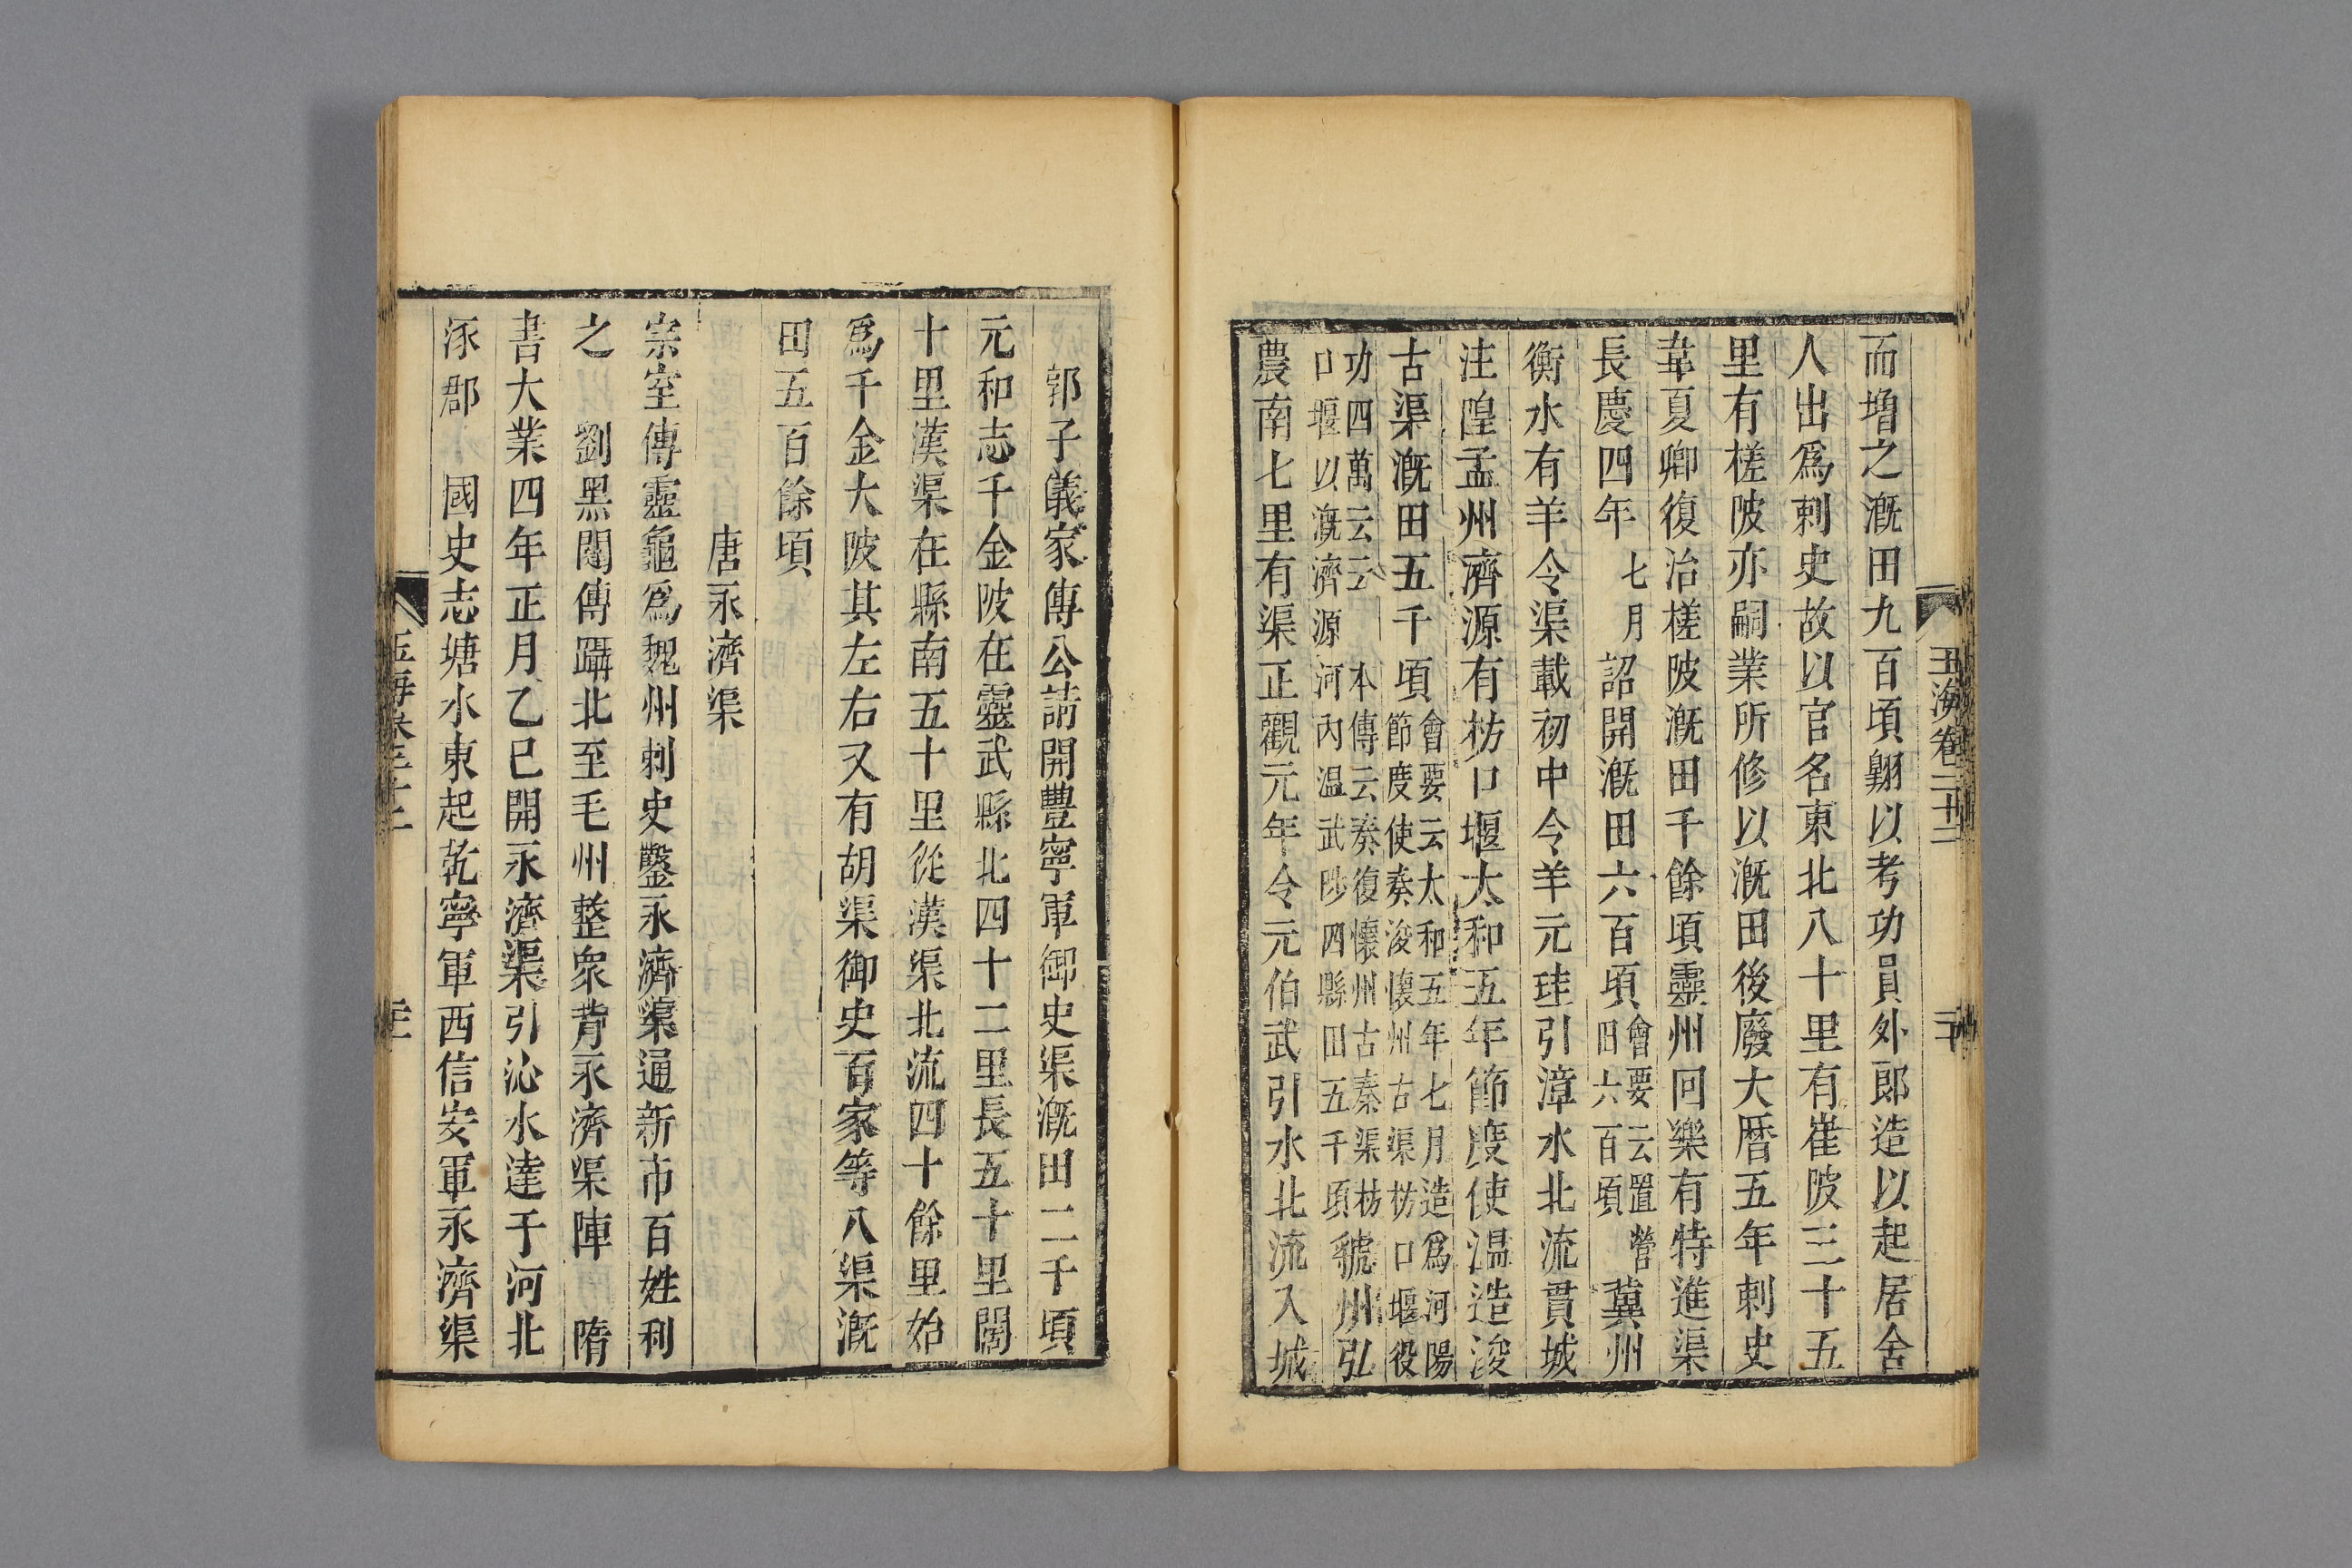 玉海卷二十二
二十
而增之漑田九百頃翺以考功員外郎造以起居舍
人出爲剌史故以官名東北八十里有崔陂三十五
里有槎陂亦嗣業所修以漑田後廢大曆五年剌史
韋夏卿復治槎陂漑田千餘頃靈州囘樂有特進渠
長慶四年七月詔開漑田六百頃會要云置營田六百頃冀州
衡水有羊令渠載初中令羊元珪引漳水北流貫城
注隍孟州濟源有枋口堰太和五年節度使溫造浚
古渠漑田五千頃會要云太和五年七月造爲河陽節度使奏浚懷州古渠枋口堰役
功四萬云云本傳云奏復懷州古秦渠枋口堰以漑濟源河內温武陟四縣田五千頃虢州弘
農南七里有渠正觀元年令元伯武引水北流入城
郭子儀家傳公請開豐寧軍御史渠漑田二千頃
元和志千金陂在靈武縣北四十二里長五十里闊
十里漢渠在縣南五十里從漢渠北流四十餘里始
爲千金大陂其左右又有胡渠御史百家等八渠漑
田五百餘頃
唐永濟渠
宗室傳靈龜爲魏州剌史鑿永濟渠通新市百姓利
之 劉黑闥傳躡北至毛州整衆背永濟渠陣 隋
書大業四年正月乙巳開永濟渠引沁水達于河北
涿郡 國史志塘水東起乾寧軍西信安軍永濟渠